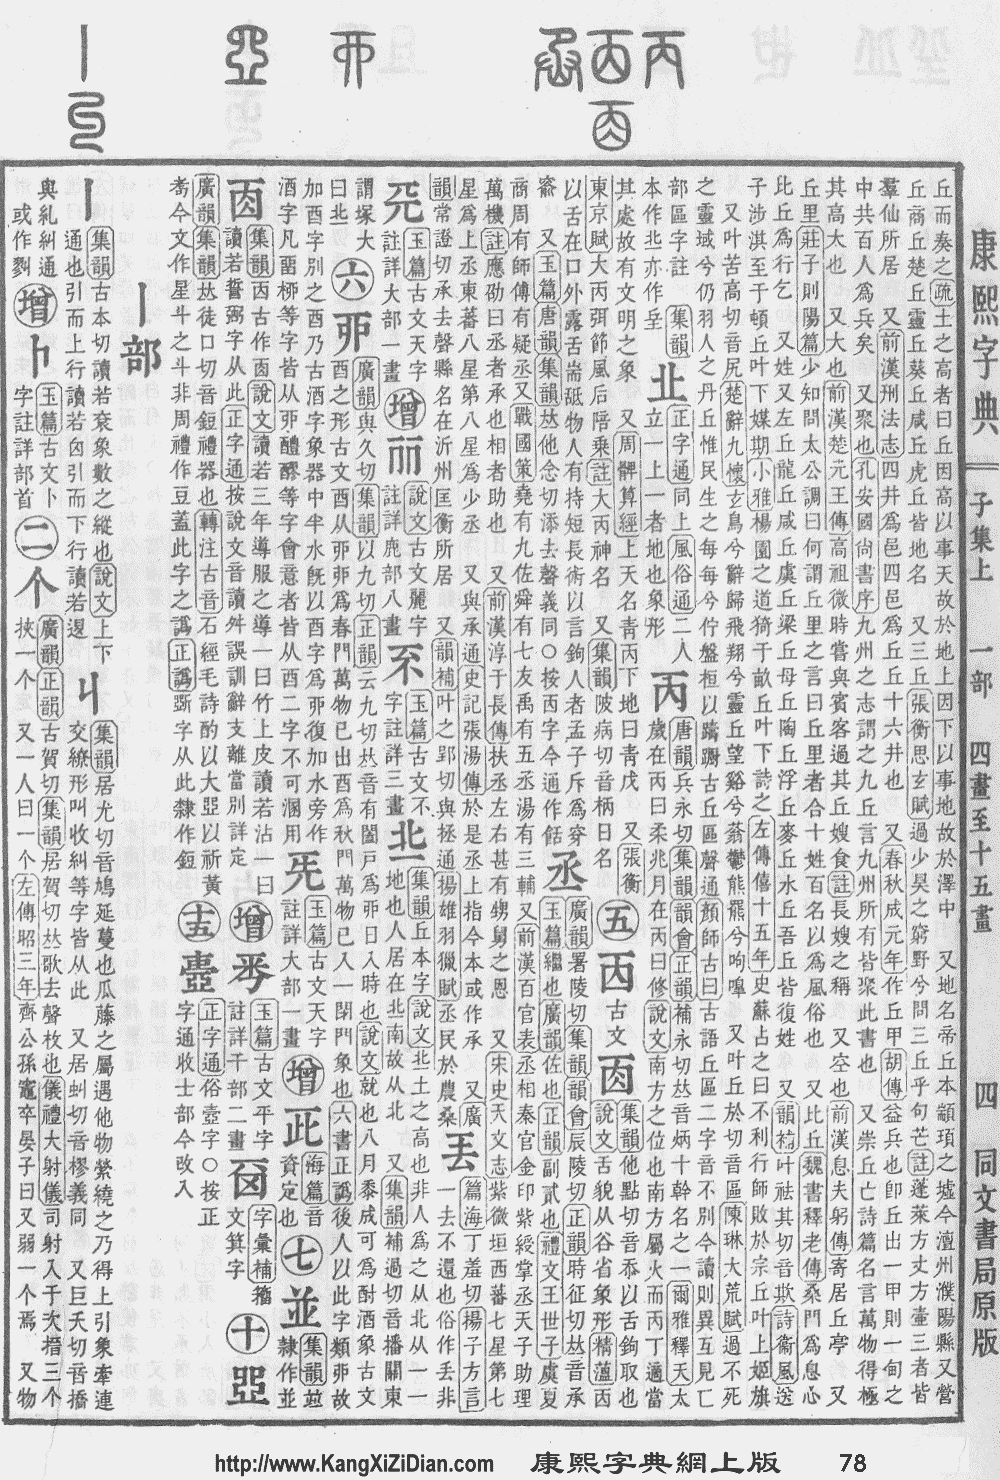 康熙字典
子集上 一部 四畫至十五畫
四 同文書局原版
丘而奏之疏土之高者曰丘因高以事天故於地上因下以事地故於澤中 又地名帝丘本顓頊之墟今澶州濮陽縣又營
丘商丘楚丘靈丘葵丘咸丘虎丘皆地名 又三丘張衡思玄賦過少昊之窮野兮問三丘乎句芒註蓬萊方丈方壷三者皆
羣仙所居 又前漢刑法志四井爲邑四邑爲丘丘十六井也 又春秋成元年作丘甲胡傳益兵也卽丘出一甲則一甸之
中共百人爲兵矣 又聚也孔安國尙書序九州之志謂之九丘言九州所有皆聚此書也 又崇丘亡詩篇名言萬物得極
其高大也 又大也前漢楚元王傳高祖微時嘗與賓客過其丘嫂食註長嫂之稱 又空也前漢息夫躬傳寄居丘亭 又
丘里莊子則陽篇少知問太公調曰何謂丘里之言曰丘里者合十姓百名以爲風俗也 又比丘魏書釋老傳桑門爲息心
比丘爲行乞 又姓又左丘龍丘咸丘虞丘梁丘母丘陶丘浮丘麥丘水丘吾丘皆復姓 又韻補叶祛其切音欺詩衞風送
子涉淇至于頓丘叶下媒期小雅楊園之道猗于畝丘叶下詩之左傳僖十五年史蘇占之曰不利行師敗於宗丘叶上姬旗
 又叶苦高切音尻楚辭九懷玄鳥兮辭歸飛翔兮靈丘望谿兮蓊鬱熊羆兮呴嘷 又叶丘於切音區陳琳大荒賦過不死
之靈域兮仍羽人之丹丘惟民生之每每兮佇盤桓以躊躕古丘區聲通顏師古曰古語丘區二字音不別今讀則異互見匚
部區字註 集韻
本作北亦作坔
止 正字通同上風俗通二人
立一上一者地也象形
丙 唐韻兵永切集韻韻會正韻補永切𠀤音炳十幹名之一爾雅釋天太
歲在丙曰柔兆月在丙曰修說文南方之位也南方屬火而丙丁適當
其處故有文明之象 又周髀算經上天名靑丙下地曰靑戊 又張衡
東京賦大丙弭節風后陪乗註大丙神名 又集韻陂病切音柄日名
五 㐁 古文 𠀬 集韻他點切音忝以舌鉤取也
說文舌貌从谷省象形精薀㐁
以舌在口外露舌耑舐物人有持短長術以言鉤人者孟子斥爲穿
窬 又玉篇唐韻集韻𠀤他念切添去聲義同○按丙字今通作餂
丞 廣韻署陵切集韻韻會辰陵切正韻時征切𠀤音承
玉篇繼也廣韻佐也正韻副貳也禮文王世子虞夏
商周有師傅有疑丞又戰國策堯有九佐舜有七友禹有五丞湯有三輔又前漢百官表丞相秦官金印紫綬掌丞天子助理
萬機註應劭曰丞者承也相者助也 又前漢淳于長傳扶丞左右甚有甥舅之恩 又宋史天文志紫微垣西蕃七星第七
星爲上丞東蕃八星第八星爲少丞 又與承通史記張湯傳於是丞上指今本或作承 又廣韻常證切揚子方言
韻常證切承去聲縣名在沂州匡衡所居 又韻補叶之郢切與拯通揚雄羽獵賦丞民於農桑
丟 篇海丁羞切
一去不還也俗作丢非
兂 玉篇古文天字
註詳大部一畫
增 丽 說文古文麗字
註詳鹿部八畫
𠀚 玉篇古文不
字註詳三畫
北一 集韻丘本字說文北土之高也非人爲之从北从一一
地也人居在北南故从北 又集韻補過切音播關東
謂塚大
曰北
六 丣 廣韻與久切集韻以九切正韻云九切𠀤音有闔戶爲丣日入時也說文就也八月黍成可爲酎酒象古文
酉之形古文酉从丣丣爲春門萬物已出酉爲秋門萬物已入一閉門象也六書正譌後人以此字類丣故
加酉字別之酉乃古酒字象器中半水旣以酉字爲丣復加水旁作
酒字凡畱桺等字皆从丣醴醪等字會意者皆从酉二字不可溷用
兂 玉篇古文天字
註詳大部一畫
增 丠 海篇音
資定也
七 並 集韻竝
隸作並
𠀬 集韻丙古作𠀬說文讀若三年導服之導一曰竹上皮讀若沾一曰
讀若誓弼字从此正字通按說文音讀舛誤訓辭支離當別詳定
增 𠀘 玉篇古文平字
註詳干部二畫
𠀠 字彙補籀
文箕字
十 㗊
廣韻集韻𠀤徒口切音鋀禮器也轉注古音石經毛詩酌以大㗊以祈黃
耇今文作星斗之斗非周禮作豆蓋此字之譌正譌斲字从此隸作鋀
𡔷 壼 正字通俗壼字○按正
字通收士部今改入
丨部
丨 集韻古本切讀若袞象數之縱也說文上下
通也引而上行讀若囟引而下行讀若𨓤
丩 集韻居尤切音鳩延蔓也瓜藤之屬遇他物縈繞之乃得上引象牽連
交繚形叫收糾等字皆从此 又居虯切音樛義同 又巨夭切音撟
與糺糾通
或作剹
增 卜 玉篇古文卜
字註詳部首
二 个 廣韻正韻古賀切集韻居賀切𠀤歌去聲枚也儀禮大射儀司射入于次搢三个
挾一个 又一人曰一个左傳昭三年齊公孫竈卒晏子曰又弱一个焉 又物
http://www.KangXiZiDian.com 康熙字典網上版 78